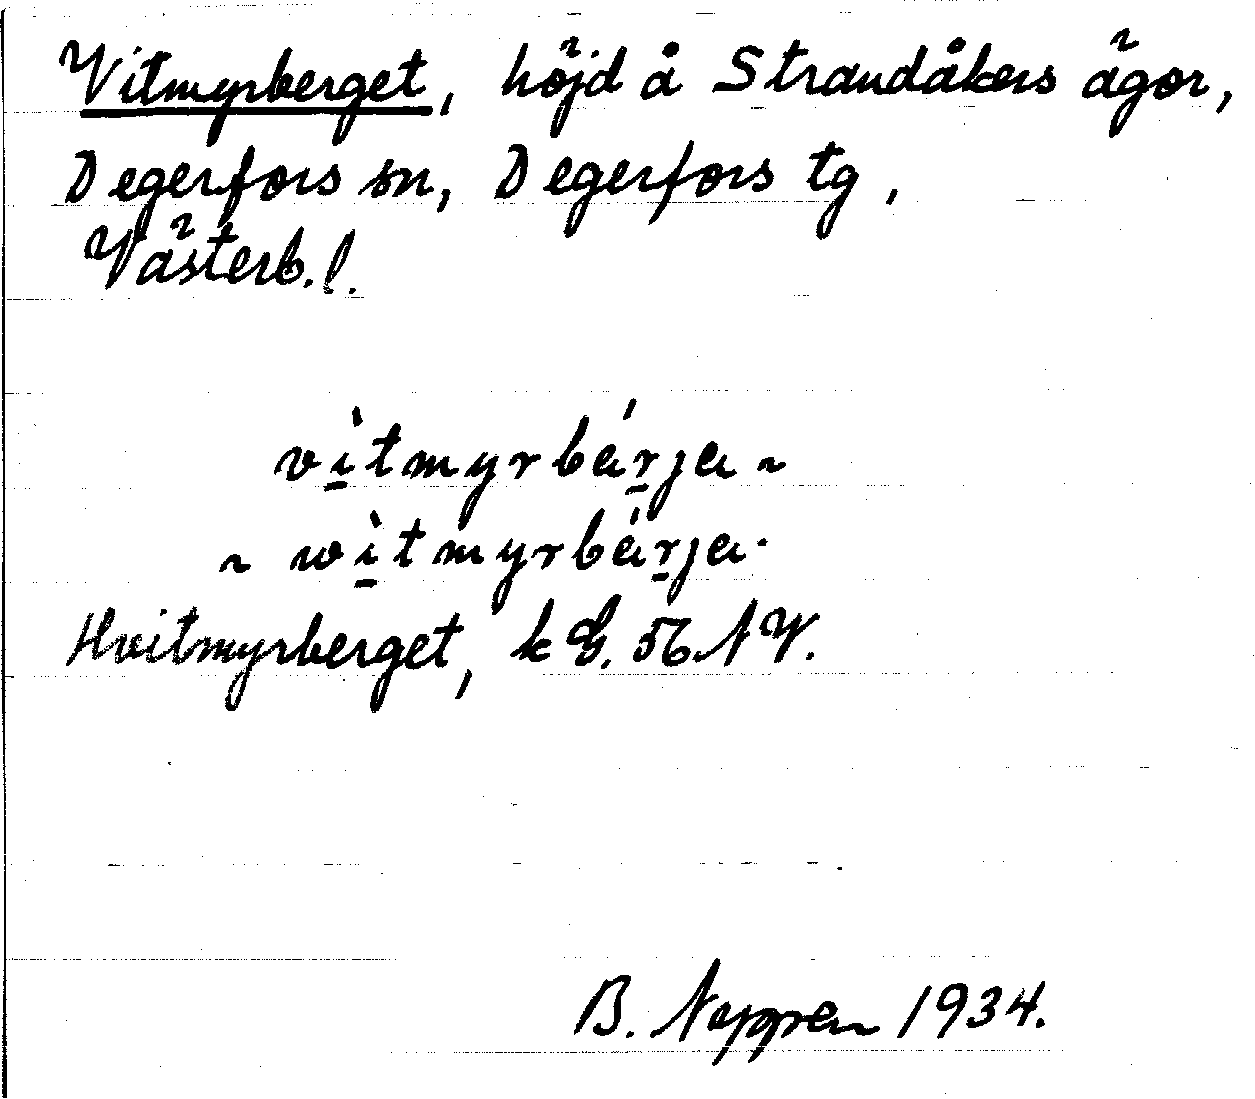 Vitmyrberget, höjd å Strandåkers ägor,
Degerfors sn, Degerfors tg,
Västerb. l.
vìtmyrbárja ~
~ wìtmyrbárja.
Hvitmyrberget, k G. 56 NV.
B. 1934.